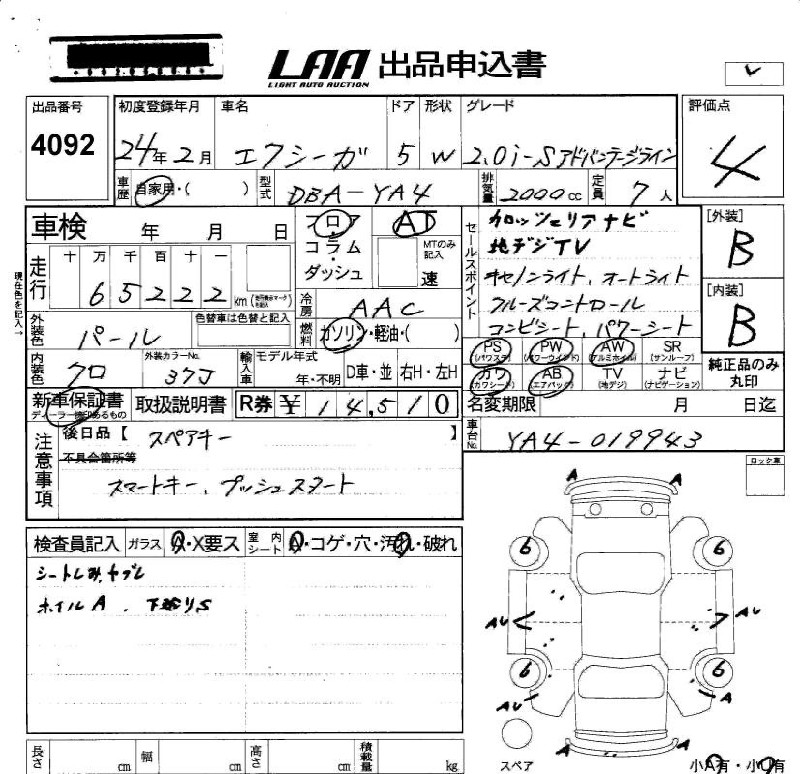 LAA 出品申込書
LIGHT AUTO AUCTION
出品番号 4092
初度登録年月 24年 2月
車名 エクシーガ
ドア 5
形状 W
グレード 2.0i-Sアドバンテージライン
評価点 4
車歴 自家用・( )
型式 DBA-YA4
排気量 2000cc
定員 7人
車検 年 月 日
フロア・コラム・ダッシュ
AT
MTのみ記入 速
走行 十 万 千 百 十 一
65222 km
冷房 AAC
現在色を記入→
外装色 パール
色替車は色替と記入
燃料 ガソリン・軽油・( )
内装色 クロ
外装カラーNo. 37J
輸入車 モデル年式 年・不明 D車・並 右H・左H
新車保証書 ディーラー捺印あるもの
取扱説明書
R券 ¥14,510
セールスポイント
カロッツェリアナビ
地デジTV
キセノンライト、オートライト
クルーズコントロール
コンビシート、パワーシート
[外装] B
[内装] B
PS (パワステ) PW (パワーウインド) AW (アルミホイル) SR (サンルーフ)
カワ (カワシート) AB (エアバック) TV (地デジ) ナビ (ナビゲーション)
純正品のみ丸印
名変期限 月 日迄
車台No. YA4-019943
注意事項
後日品【 スペアキー 】
不具合箇所等
スマートキー、プッシュスタート
ロック車
検査員記入 ガラス A・X要ス 室内シート A・コゲ・穴・汚れ・破れ
シートしみ,ヤブレ
ホイルA、下廻りS
A A
6 6
AU AU
6 6
AU A
A A
スペア
小A有・小U有
長さ cm 幅 cm 高さ cm 積載量 kg